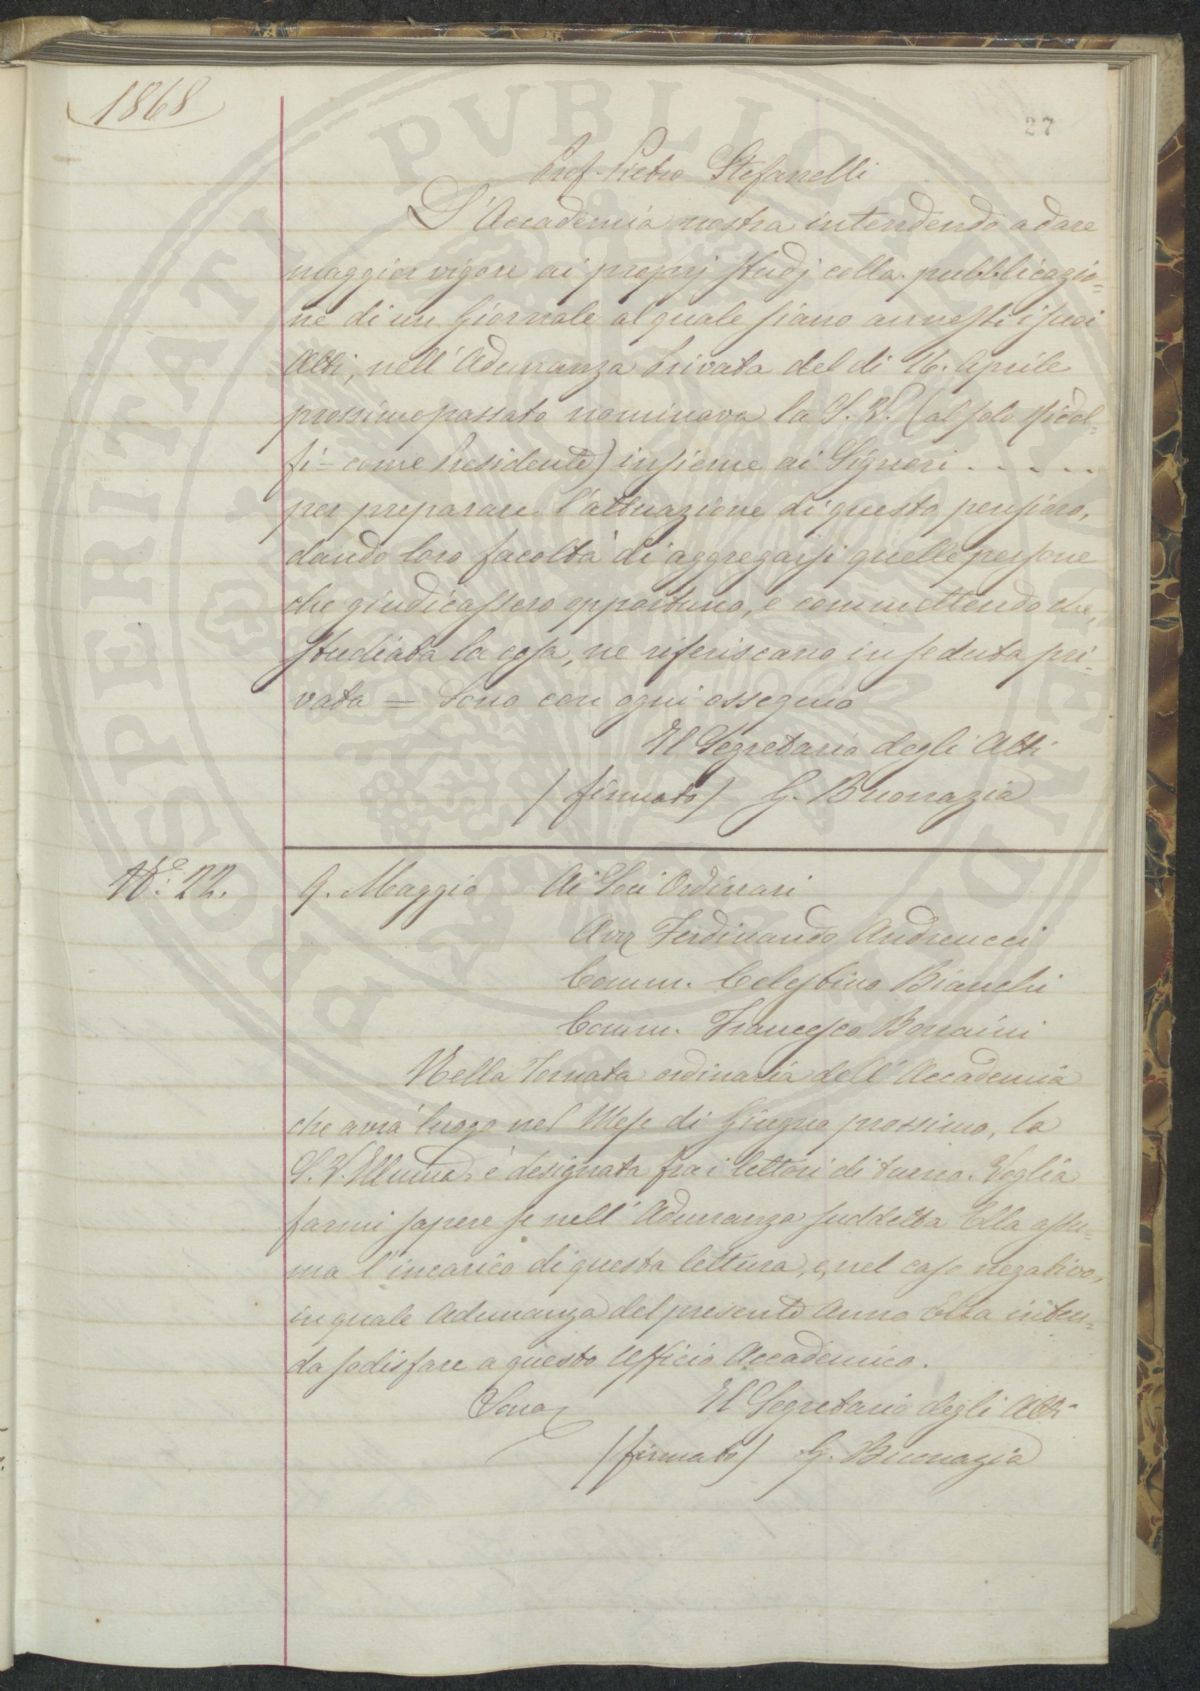 1868
27
Prof. Pietro Stefanelli
L'Accademia nostra intendendo a dare
maggior vigore ai proprj studj colla pubblicazio=
ne di un Giornale al quale siano annessi i suoi
Atti, nell'Adunanza Privata del dì 16. Aprile
prossimo passato nominava la S. V. (al solo Ridol=
fi - come Presidente) insieme ai Signori . . . . .
per preparare l'attuazione di questo pensiero,
dando loro facoltà di aggregarsi quelle persone
che giudicassero opportuno, e commettendo che,
studiata la cosa, ne riferiscano in seduta pri=
vata = Sono con ogni ossequio
Il Segretario degli Atti
/firmato/ G. Buonazia
N.° 22.
9. Maggio Ai Soci Ordinari
Avv. Ferdinando Andreucci
Comm. Celestino Bianchi
Comm. Francesco Bonaini
Nella Tornata ordinaria dell'Accademia
che avrà luogo nel Mese di Giugno prossimo, la
S. V. Illuma è designata fra i lettori di turno. Voglia
farmi sapere se nell'Adunanza suddetta Ella assu=
ma l'incarico di questa lettura, e, nel caso negativo,
in quale Adunanza del presente Anno Ella inten=
da sodisfare a questo Ufficio Accademico.
Sono
Il Segretario degli Atti
/firmato/ G. Buonazia
PROSPERITATI PVBLICAE AVGENDAE